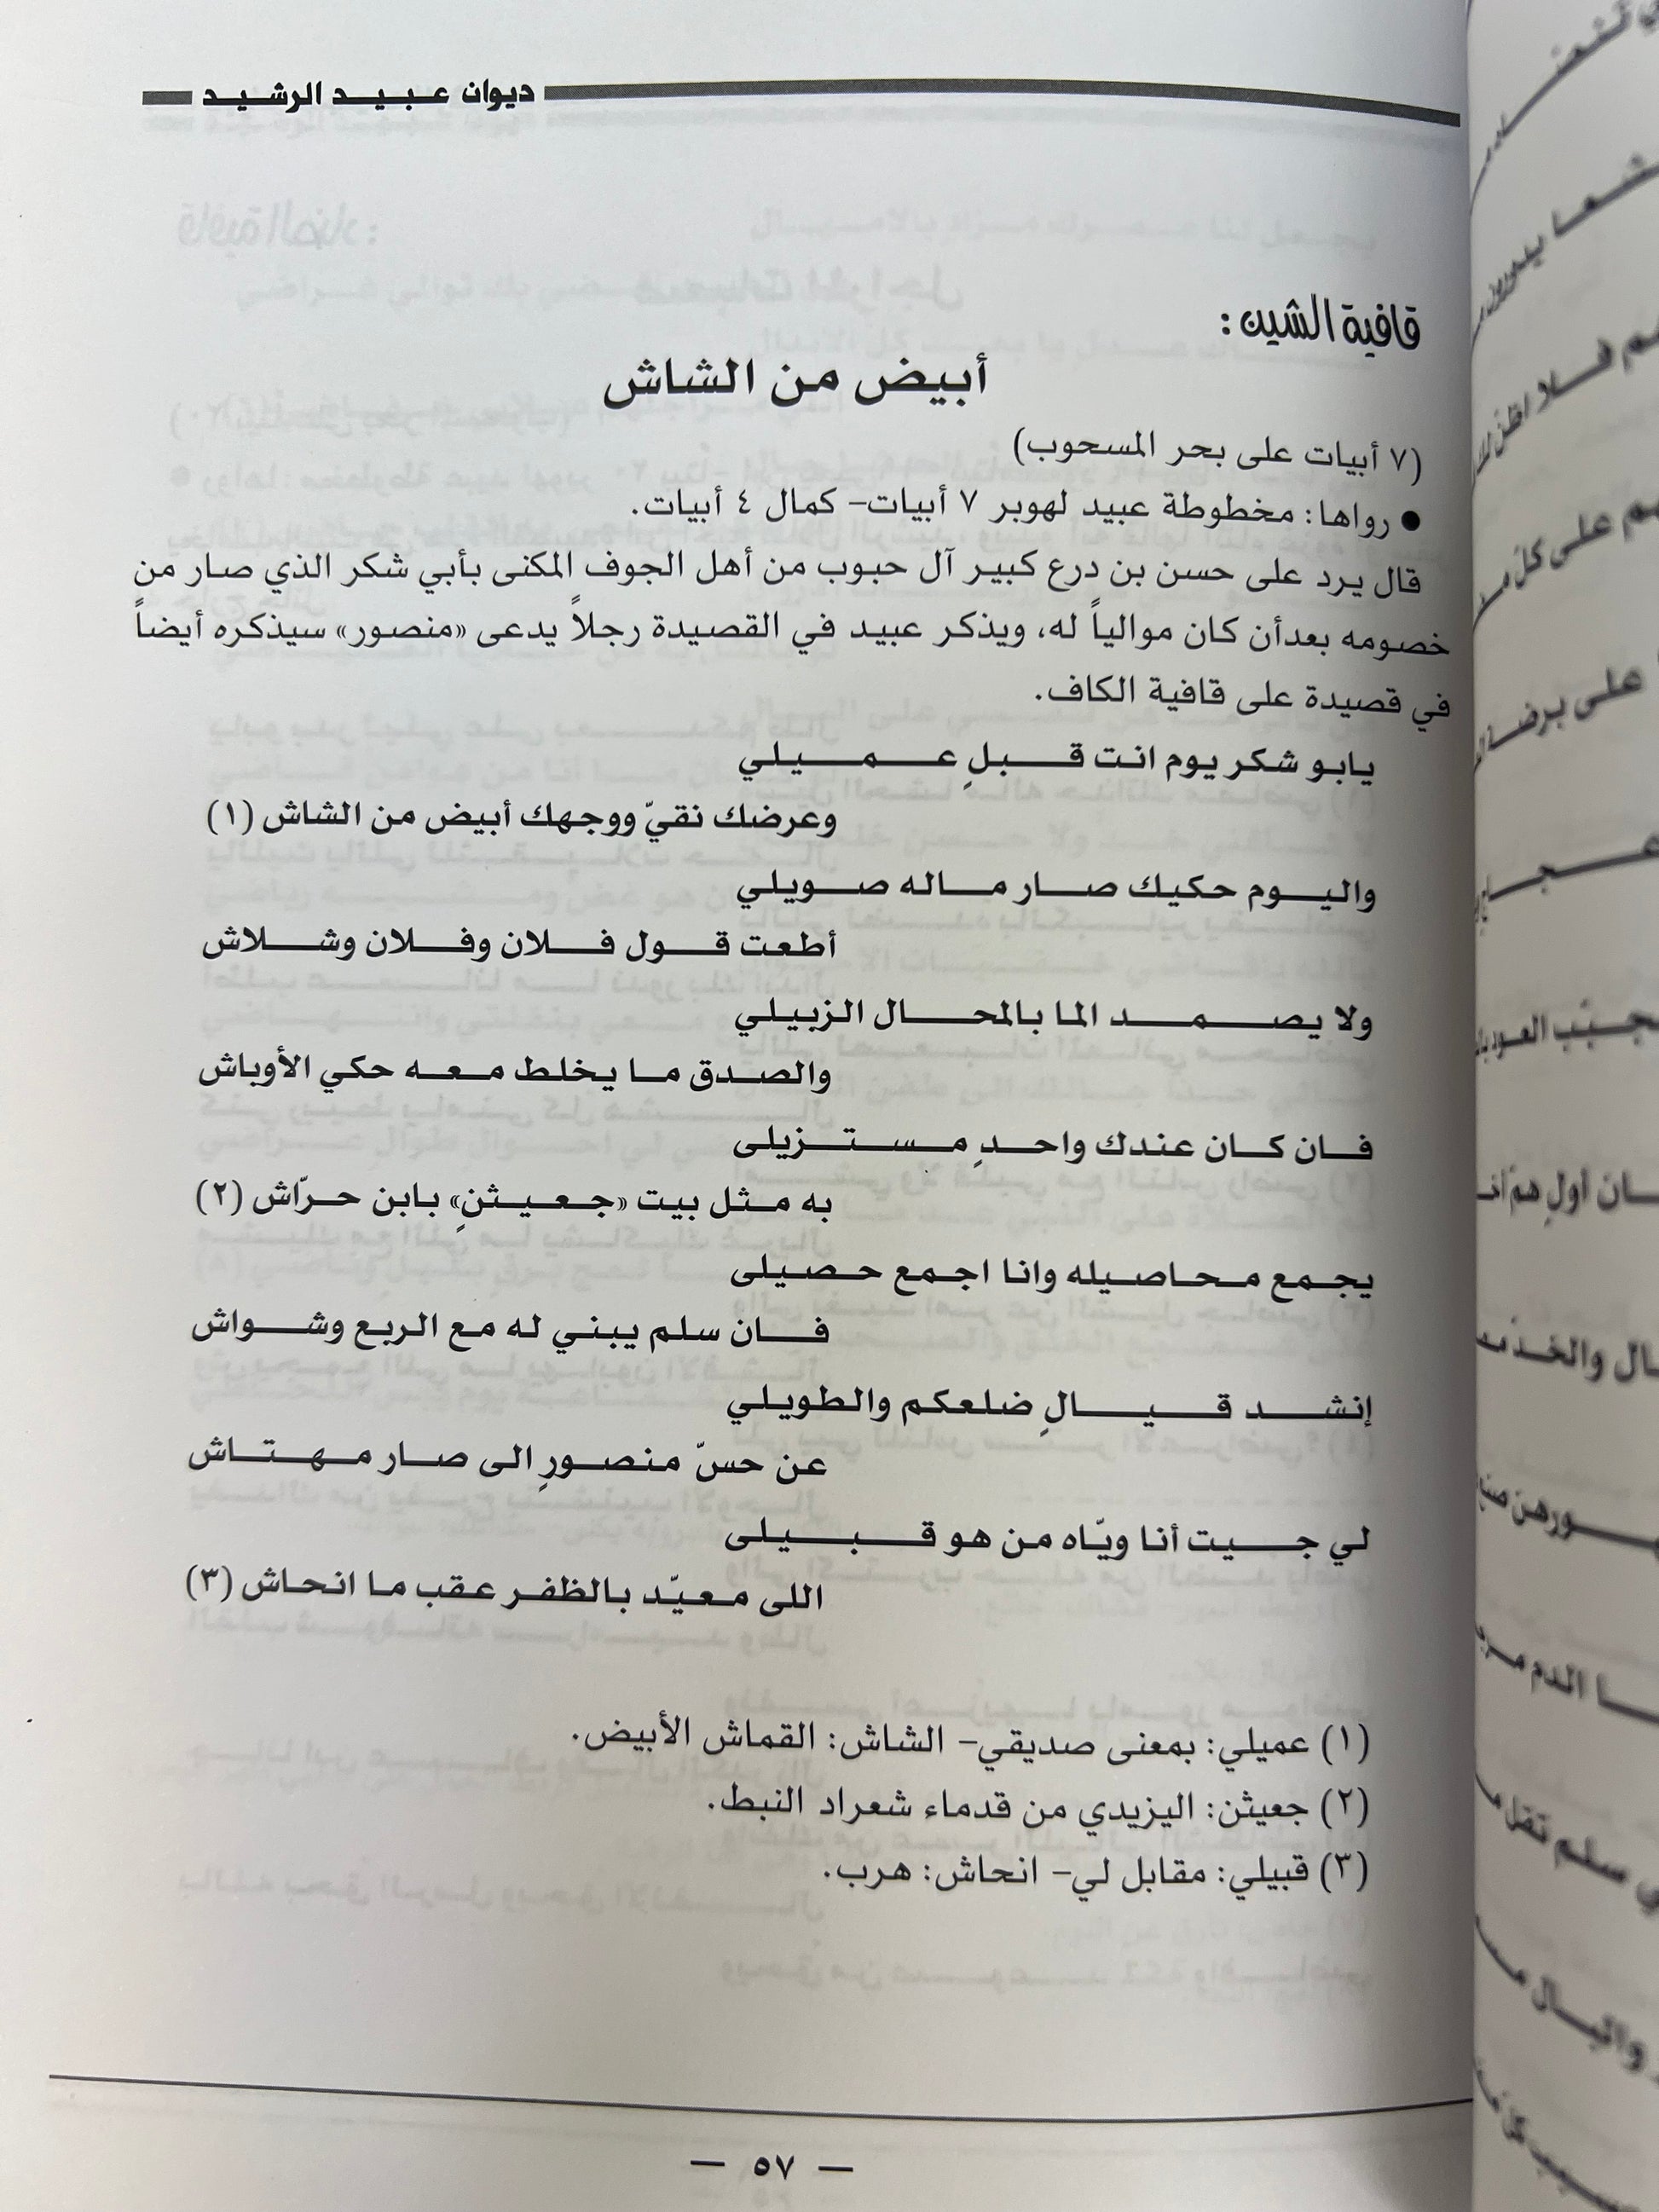 ديوان عبيد الرشيد
قافية الشين:
أبيض من الشاش
(٧ أبيات على بحر المسحوب)
● رواها: مخطوطة عبيد لهوبر ٧ أبيات- كمال ٤ أبيات.
قال يرد على حسن بن درع كبير آل حبوب من أهل الجوف المكنى بأبي شكر الذي صار من
خصومه بعدأن كان موالياً له، ويذكر عبيد في القصيدة رجلاً يدعى «منصور» سيذكره أيضاً
في قصيدة على قافية الكاف.
يابو شكر يوم انت قبلٍ عميلي
وعرضك نقيّ ووجهك أبيض من الشاش (١)
واليوم حكيك صار ماله صويلي
أطعت قول فلان وفلان وشلاش
ولا يصمد الما بالمحال الزبيلي
والصدق ما يخلط معه حكي الأوباش
فان كان عندك واحدٍ مستزيلى
به مثل بيت «جعيثنٍ» بابن حرّاش (٢)
يجمع محاصيله وانا اجمع حصيلى
فان سلم يبني له مع الربع وشواش
إنشد قيالٍ ضلعكم والطويلي
عن حسّ منصورٍ الى صار مهتاش
لي جيت أنا ويّاه من هو قبيلى
اللى معيّد بالظفر عقب ما انحاش (٣)
(١) عميلي: بمعنى صديقي- الشاش: القماش الأبيض.
(٢) جعيثن: اليزيدي من قدماء شعراد النبط.
(٣) قبيلي: مقابل لي- انحاش: هرب.
— ٥٧ —